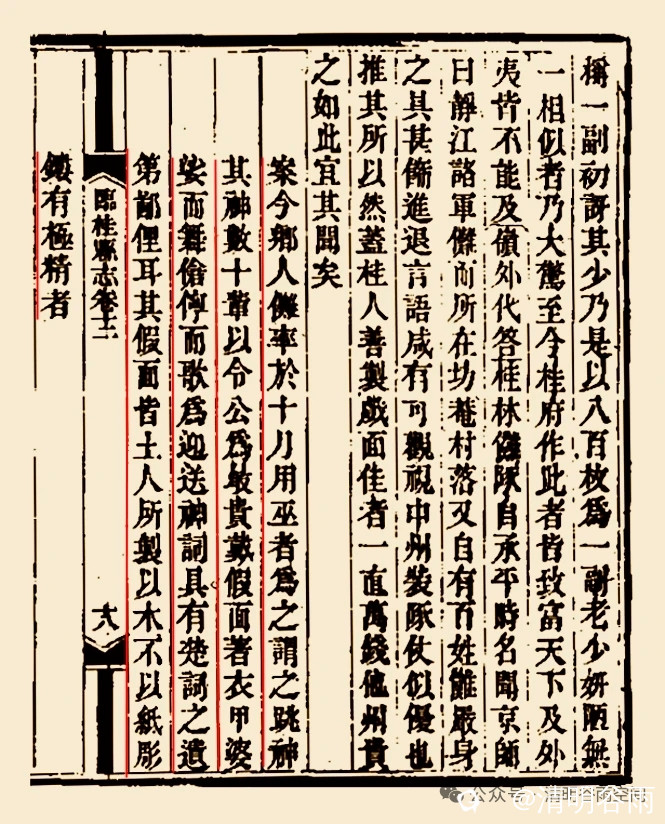 稱一副初訝其少乃是以八百枚爲一副老少妍陋無
一相似者乃大驚至今桂府作此者皆致富天下及外
夷皆不能及嶺外代答桂林儺隊自承平時名聞京師
曰靜江諸軍儺而所在坊巷村落又自有百姓儺嚴身
之具甚飾進退言語咸有可觀視中州裝隊仗似優也
推其所以然蓋桂人善製戲面佳者一直萬錢他州貴
之如此宜其聞矣
案今鄉人儺率於十月用巫者爲之謂之跳神
其神數十輩以令公爲最貴戴假面著衣甲婆
娑而舞傖儜而歌爲迎送神詞具有楚詞之遺
第鄙俚耳其假面皆土人所製以木不以紙彫
臨桂縣志卷十二
鏤有極精者
公众号·清明谷雨空间
@清明谷雨